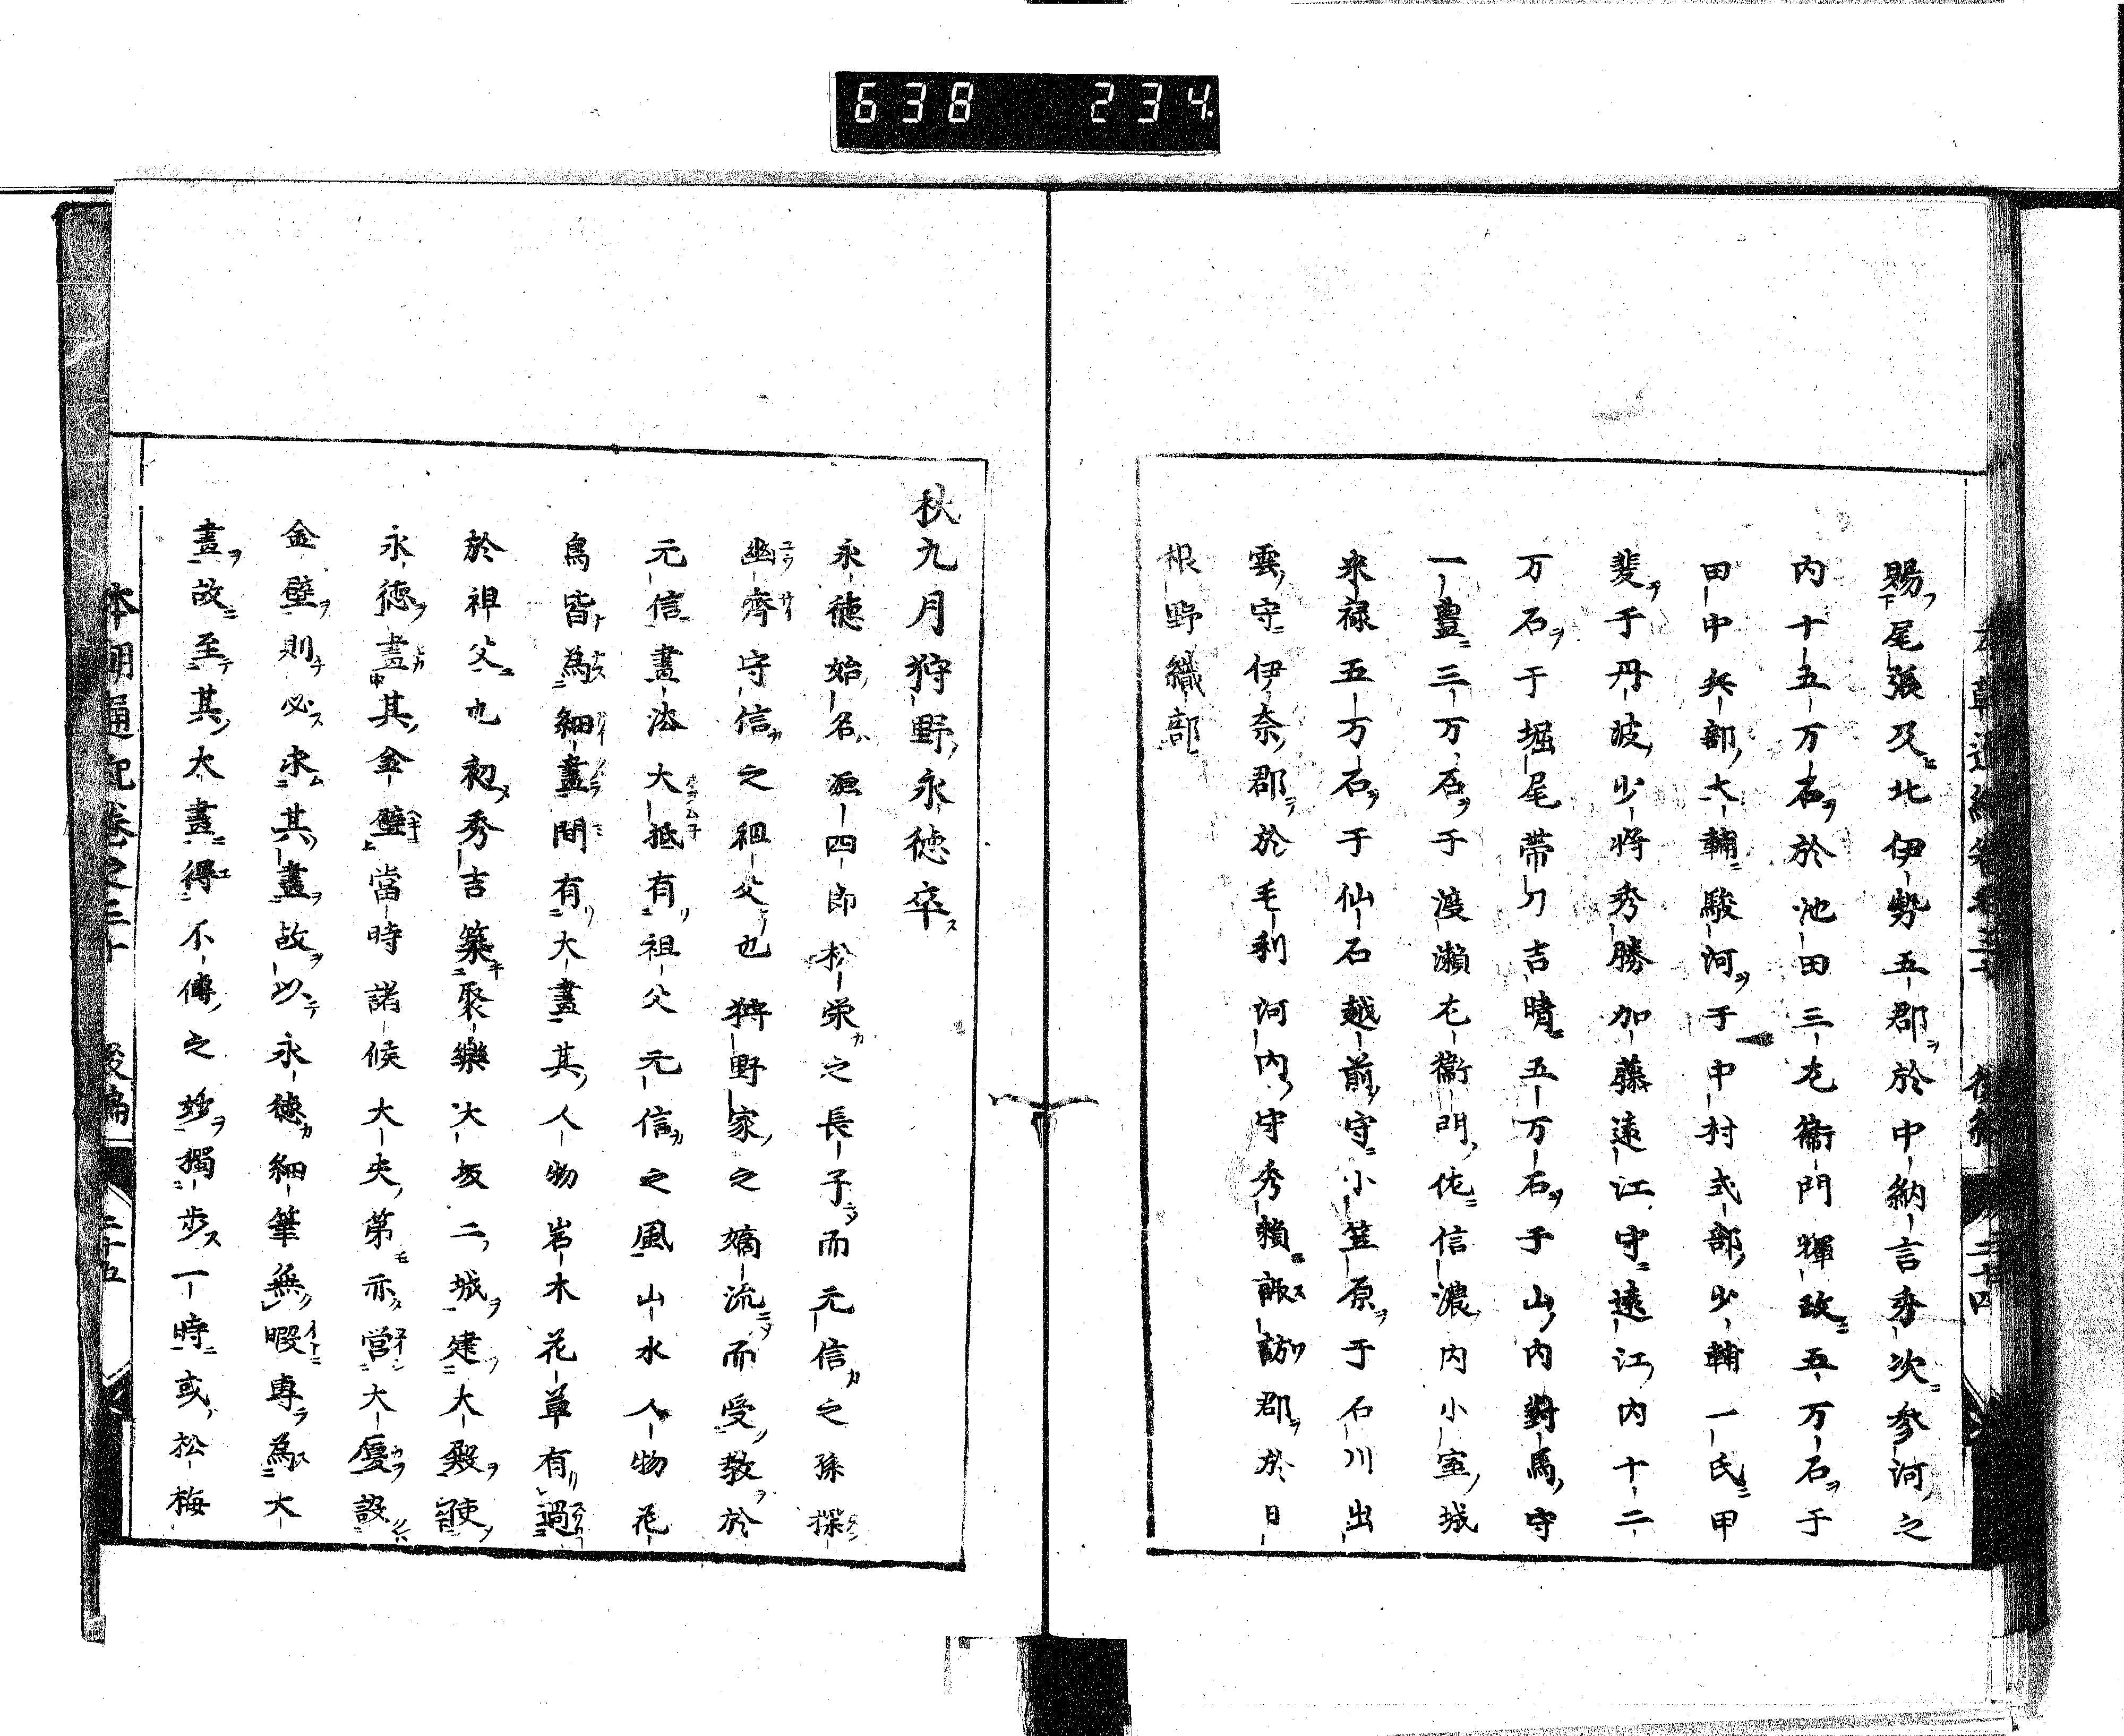 638 234
賜尾張及北伊勢五郡於中納言秀次参河之
内十五万石於池田三左衞門輝政五万石于
田中兵部大輔駿河于中村式部少輔一氏甲
斐于丹波少将秀勝加藤遠江守遠江内十二
万石于堀尾帯刀吉晴五万石于山内對馬守
一豊三万石于渡瀬左衞門佐信濃内小室城
来禄五万石于仙石越前守小笠原于石川出
雲守伊奈郡於毛利河内守秀頼諏訪郡於日
根野織部
本朝通紀巻之三十 後編 二十四
秋九月狩野永徳卒
永徳始名源四郎松栄之長子而元信之孫探
幽齊守信之祖父也狩野家之嫡流而受教於
元信畫法大抵有祖父元信之風山水人物花
鳥皆為細畫間有大畫其人物岩木花草有過
於祖父也初秀吉築聚樂大坂二城建大殿使
永徳畫其金壁當時諸候大夫第亦営大厦設
金壁則必求其畫故以永徳細筆無暇專為大
畫故至其大畫得不傳之妙獨歩一時或松梅
本朝通紀巻之三十 後編 二十五